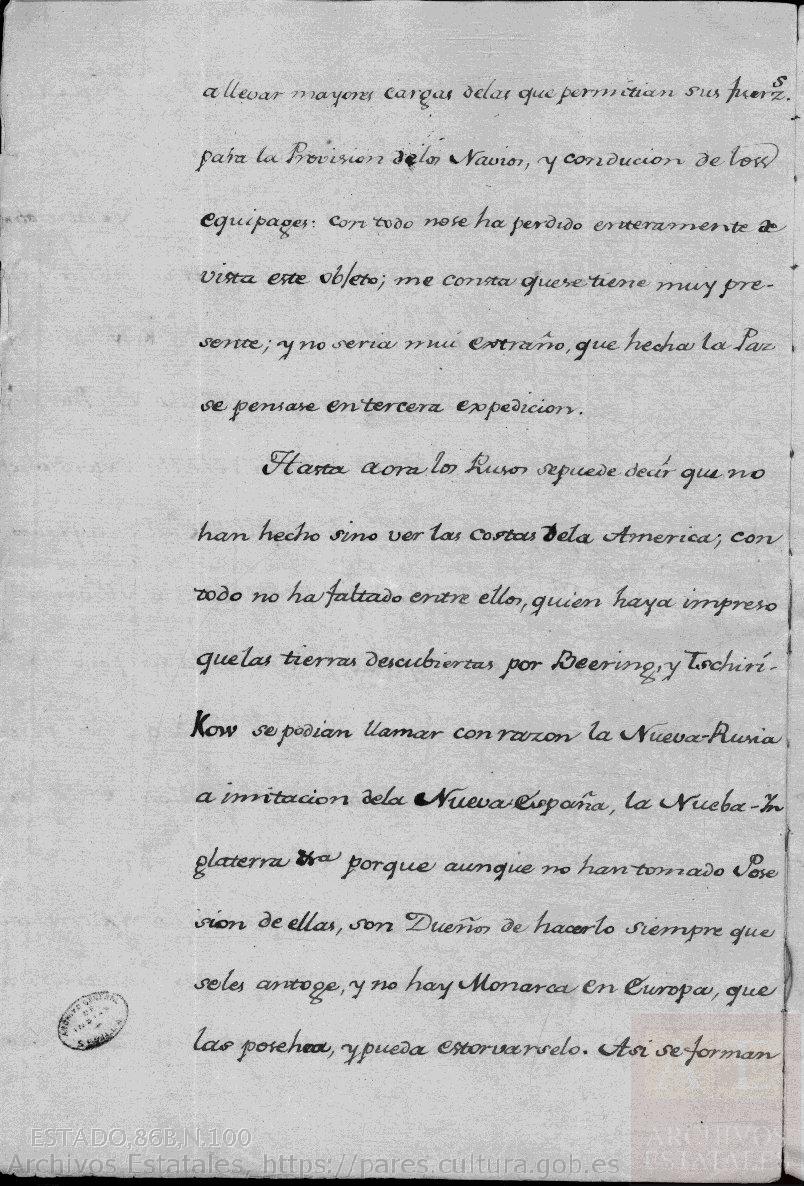 a llevar mayores cargas delas que permitian sus fuerz.s
para la Provision delos Navios, y conducion de los
equipages: con todo nose ha perdido enteramente de
vista este objeto; me consta quese tiene muy pre-
sente; y no seria mui extraño, que hecha la Paz
se pensase en tercera expedicion.
Hasta aora los Rusos sepuede decir que no
han hecho sino ver las costas dela America; con
todo no ha faltado entre ellos, quien haya impreso
quelas tierras descubiertas por Beering, y Tschiri-
Kow se podian llamar con razon la Nueva-Rusia
a imitacion dela Nueva España, la Nueba-In
glaterra &a porque aunque no han tomado Pose
sion de ellas, son Dueños de hacerlo siempre que
seles antoge, y no hay Monarca en Europa, que
las posehea, y pueda estorvarselo. Asi se forman
ARCHIVO GENERAL DE INDIAS SEVILLA
ESTADO,86B,N.100
Archivos Estatales, https://pares.cultura.gob.es
AE
ARCHIVOS
ESTATALES